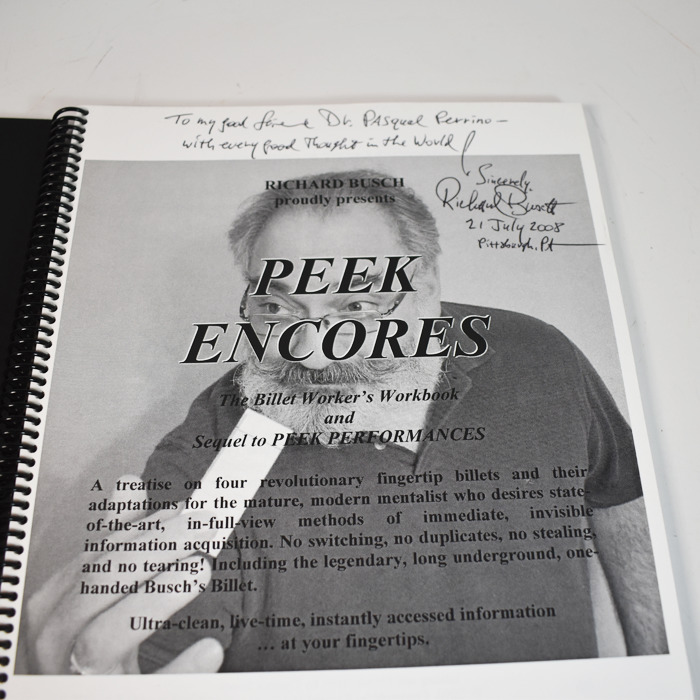 To my good friend Dr. Pasquel Perrino —
with every good Thought in the World!
Sincerely,
Richard Busch
21 July 2008
Pittsburgh, PA
RICHARD BUSCH
proudly presents
PEEK
ENCORES
The Billet Worker's Workbook
and
Sequel to PEEK PERFORMANCES
A treatise on four revolutionary fingertip billets and their
adaptations for the mature, modern mentalist who desires state-
of-the-art, in-full-view methods of immediate, invisible
information acquisition. No switching, no duplicates, no stealing,
and no tearing! Including the legendary, long underground, one-
handed Busch's Billet.
Ultra-clean, live-time, instantly accessed information
... at your fingertips.